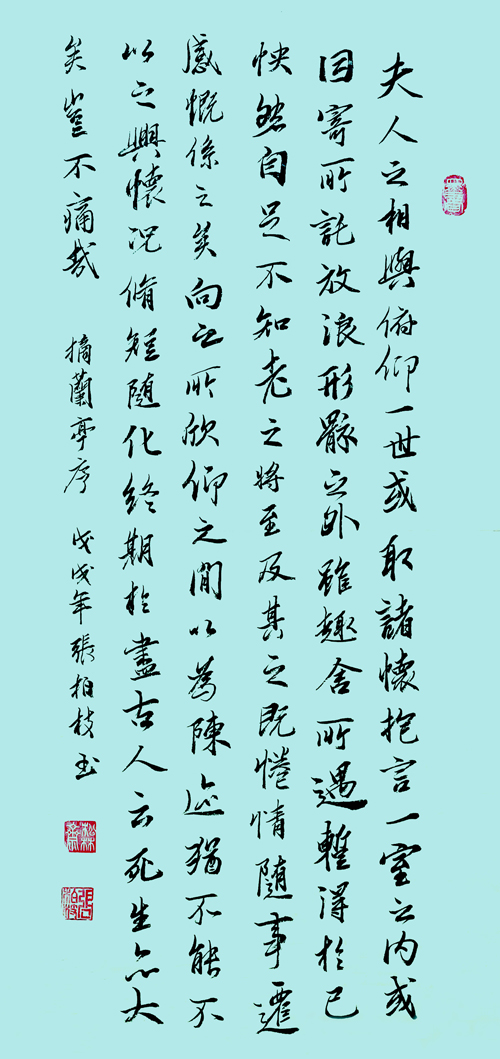 夫人之相與俯仰一世或取諸懷抱言一室之内或
因寄所託放浪形骸之外雖趣舍所遇暫得於己
怏然自足不知老之將至及其之既惓情隨事遷
感慨係之矣向之所欣仰之間以為陳迹猶不能不
以之興懷況脩短隨化終期於盡古人云死生亦大
矣豈不痛哉 摘蘭亭序 戊戌年張柏枝書